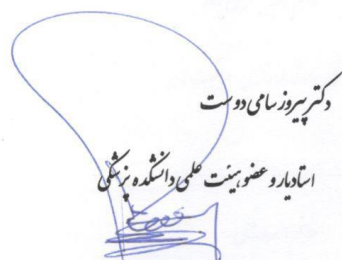 دکتر پیروز سامی دوست
استادیار و عضو هیئت علمی دانشکده پزشکی